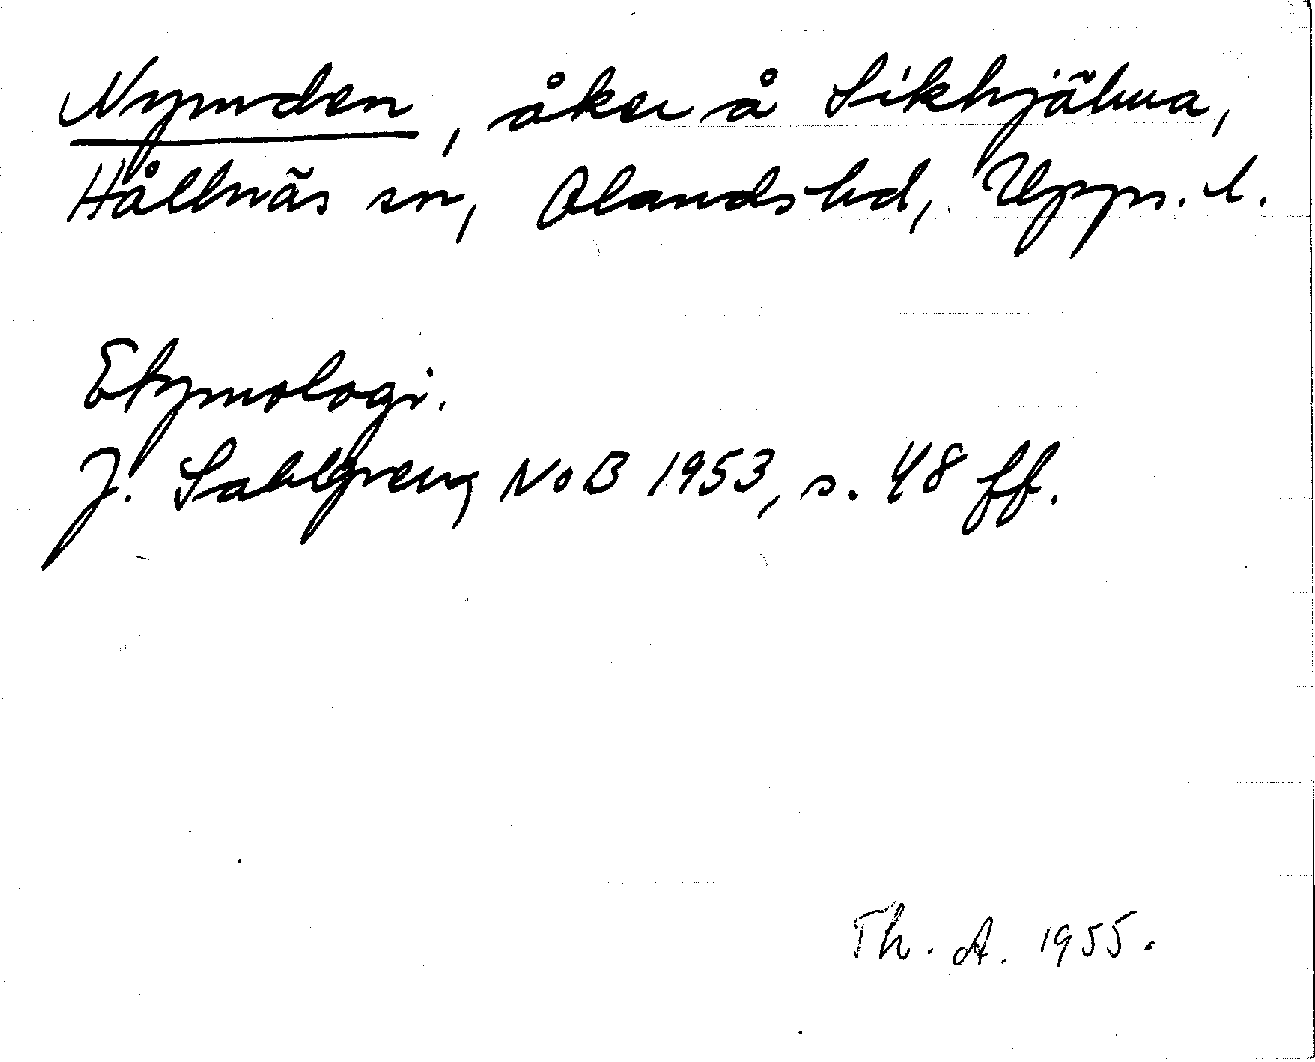 Nymden, åker å Sikhjälma,
Hållnäs sn, Olands hd, Upps. l.
Etymologi.
J. Sahlgren, NoB 1953, s. 48 ff.
Th. A. 1955.